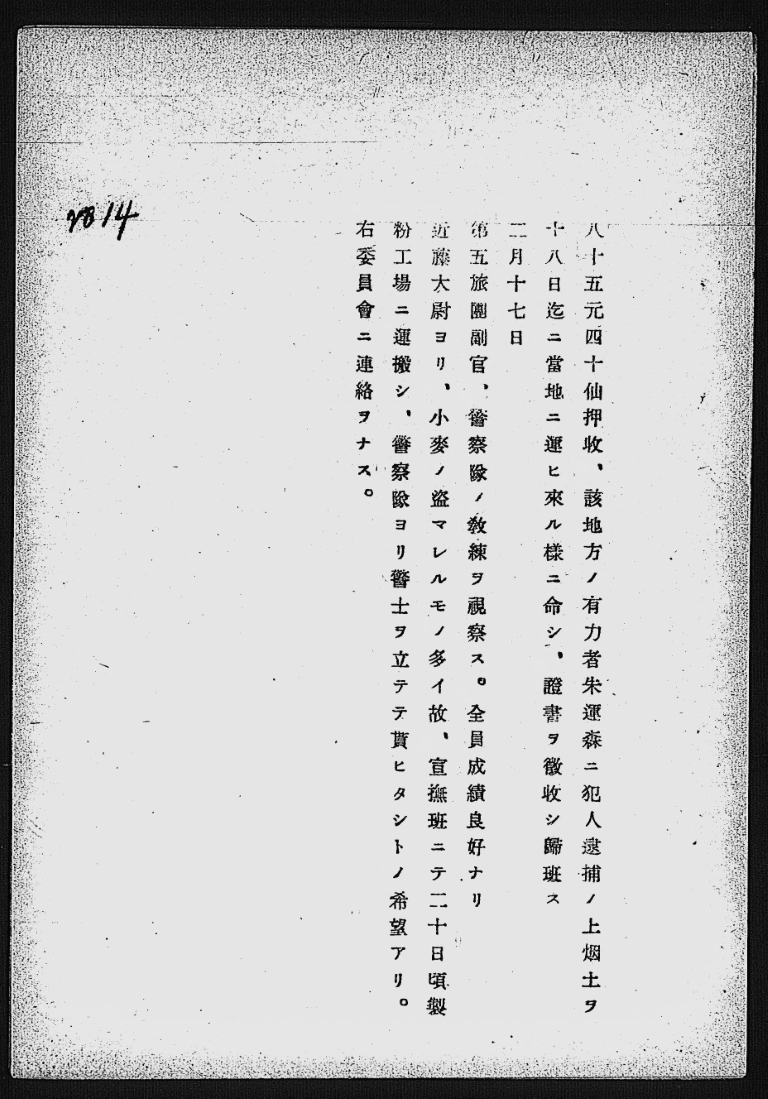 八十五元四十仙押收、該地方ノ有力者朱運森ニ犯人逮捕ノ上烟土ヲ
十八日迄ニ當地ニ運ヒ來ル樣ニ命シ、證書ヲ徵收シ歸班ス
二月十七日
第五旅團副官、警察隊ノ敎練ヲ視察ス。全員成績良好ナリ
近藤大尉ヨリ、小麥ノ盜マレルモノ多イ故、宣撫班ニテ二十日頃製
粉工場ニ運搬シ、警察隊ヨリ警士ヲ立テテ貰ヒタシトノ希望アリ。
右委員會ニ連絡ヲナス。
14